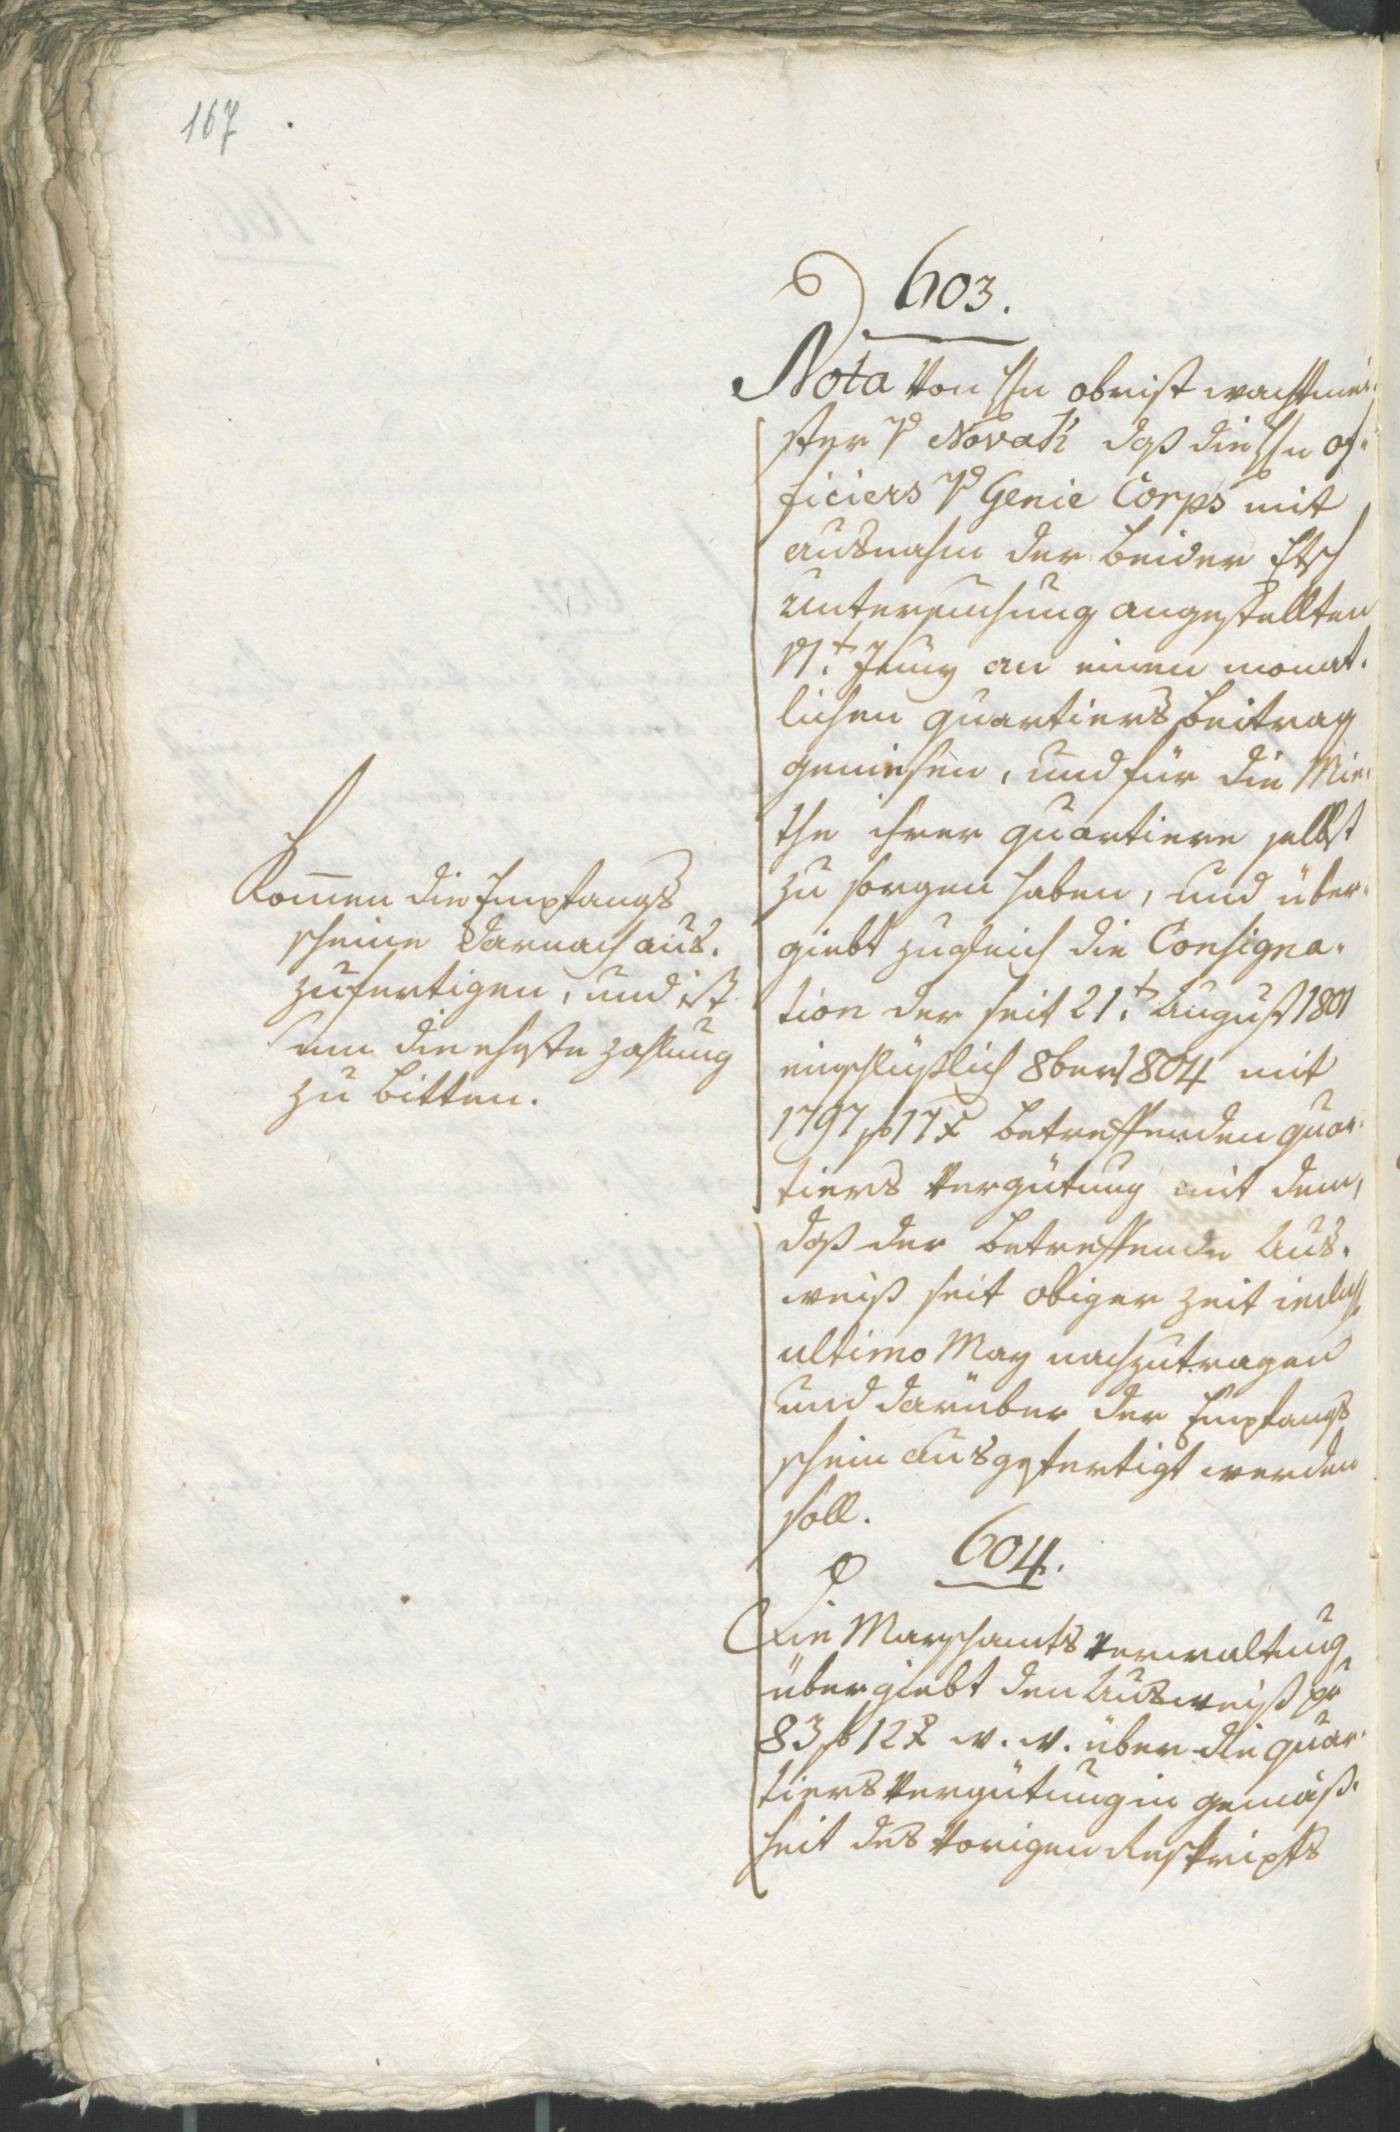 167
603.
Nota von H͞n obrist wachtmei-
ster v Novak daß die H͞n of-
ficiers v Genie Corps mit
ausnahm der beider Etsch
untersuchung angestellten
1t. Juny an einen monat-
lichen quartiers beitrag
geniesen, und für die Mie-
the ihrer quartiere selbst
zu sorgen haben, und über-
giebt zugleich die Consigna-
tion der seit 21.t August 1801
einschlüßlich 8ber 1804 mit
1797 f 17 x betreffenden quar-
tiers vergütung mit dem,
daß der betreffende Aus-
weiß seit obiger zeit inclus.
ultimo May nachzutragen
und darüber der Empfangs
schein ausgefertigt werden
soll.
Kom̄en die Empfangs
scheine darnach aus-
zufertigen, und ist
um die ehste zahlung
zu bitten.
604.
Die Marschamts verwaltung
übergiebt den Ausweiß pr
83 f 12 x w. w. über die quar-
tiers vergütung in gemäß-
heit des vorigen Reskripts